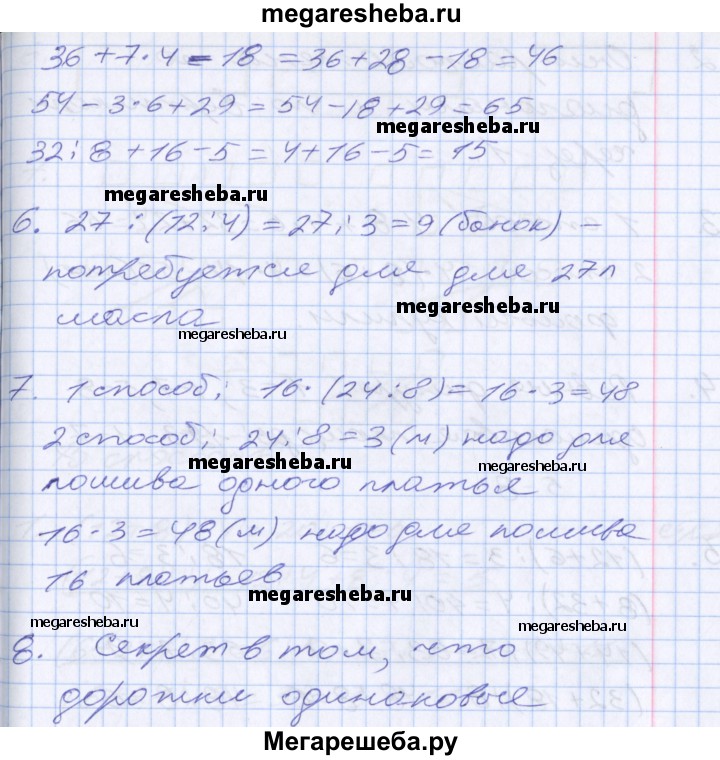 megaresheba.ru
36 + 7 · 4 - 18 = 36 + 28 - 18 = 46
54 - 3 · 6 + 29 = 54 - 18 + 29 = 65
megaresheba.ru
32 : 8 + 16 - 5 = 4 + 16 - 5 = 15
megaresheba.ru
6. 27 : (12 : 4) = 27 : 3 = 9 (банок) -
потребуется для для 27л
megaresheba.ru
масла
megaresheba.ru
7. 1 способ: 16 · (24 : 8) = 16 · 3 = 48
2 способ: 24 : 8 = 3 (м) надо для
megaresheba.ru megaresheba.ru
пошива одного платья
16 · 3 = 48 (м) надо для пошива
16 платьев
megaresheba.ru
megaresheba.ru megaresheba.ru
8. Секрет в том, что
дорожки одинаковые
Мегарешеба.ру